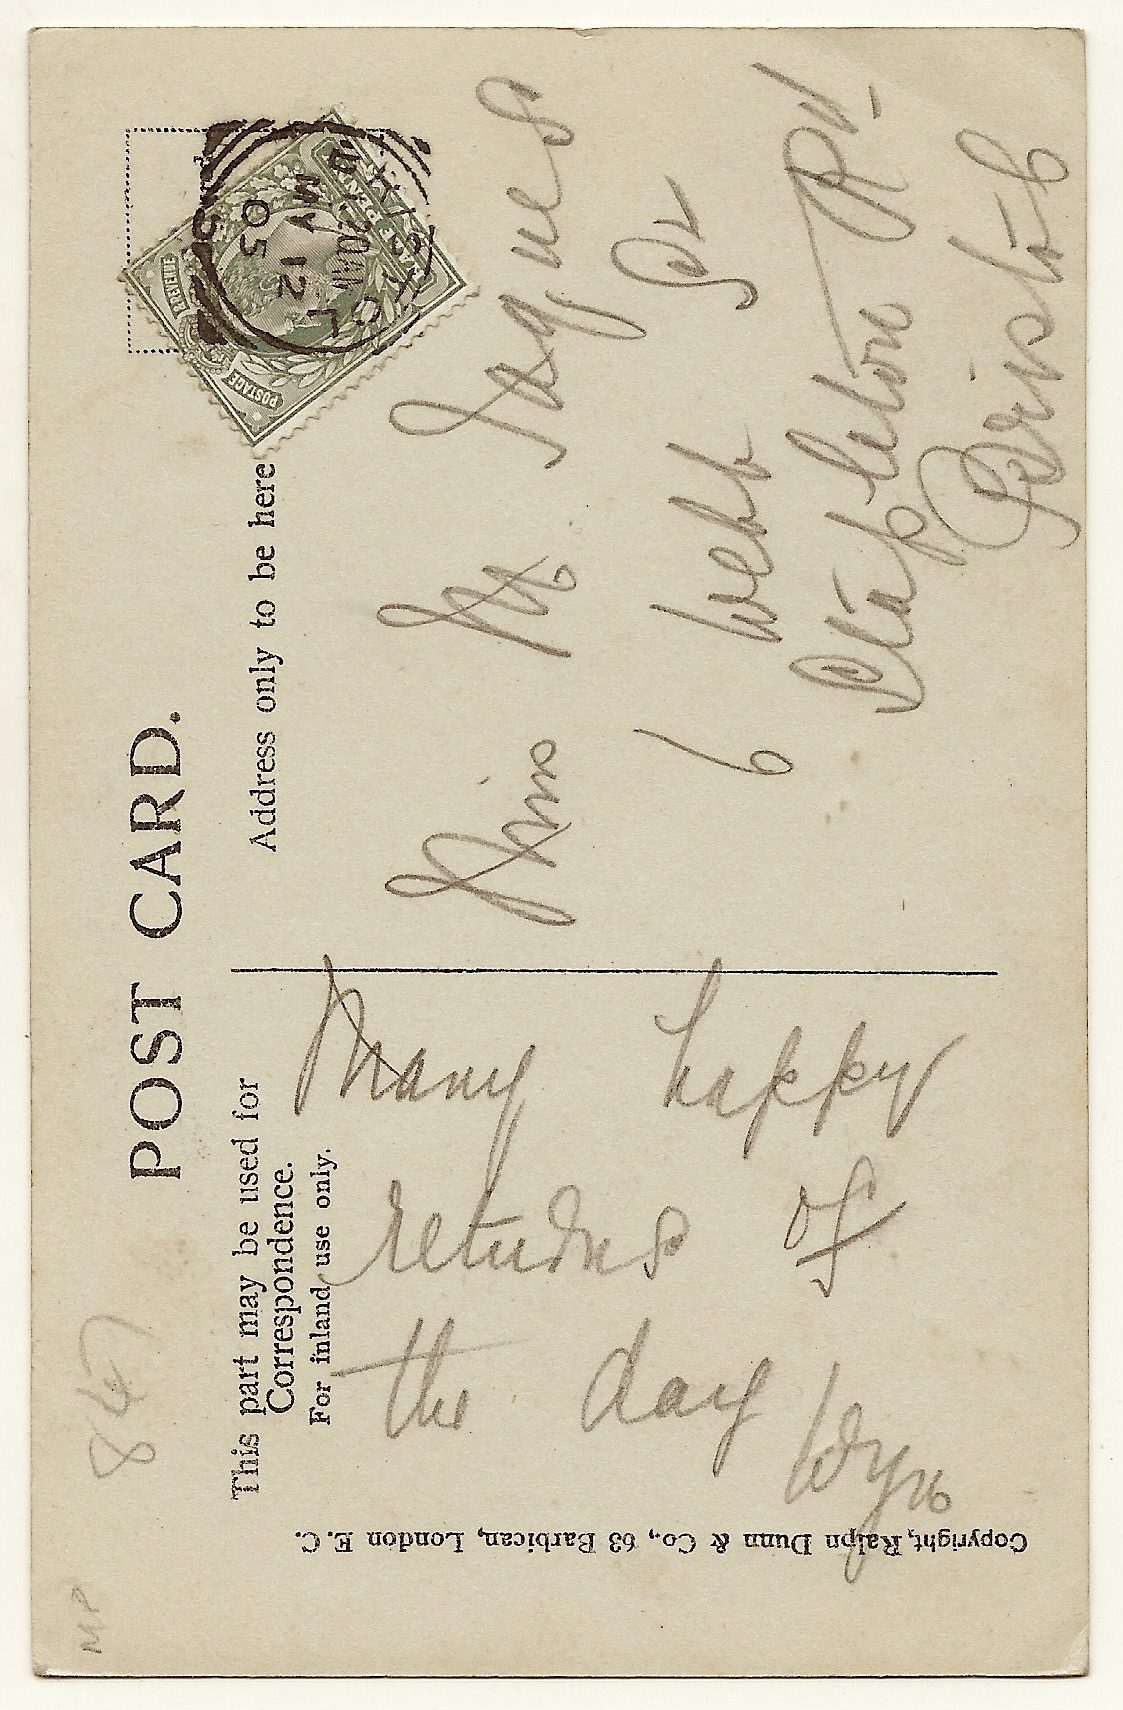 POST CARD.
This part may be used for
Correspondence.
For inland use only.
Address only to be here
Many happy
returns of
the day
Wyn
Miss M. Jaques
6 Webb St
Stapleton Rd
Bristol
Copyright, Ralph Dunn & Co., 63 Barbican, London E.C.
BRISTOL
MY 12
05
POSTAGE
REVENUE
MP